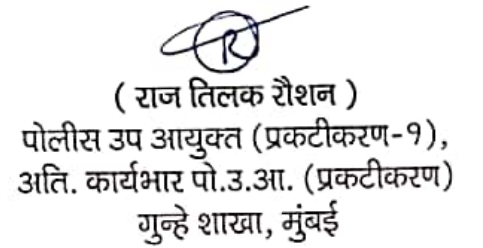 ( राज तिलक रौशन )
पोलीस उप आयुक्त (प्रकटीकरण-१),
अति. कार्यभार पो.उ.आ. (प्रकटीकरण)
गुन्हे शाखा, मुंबई